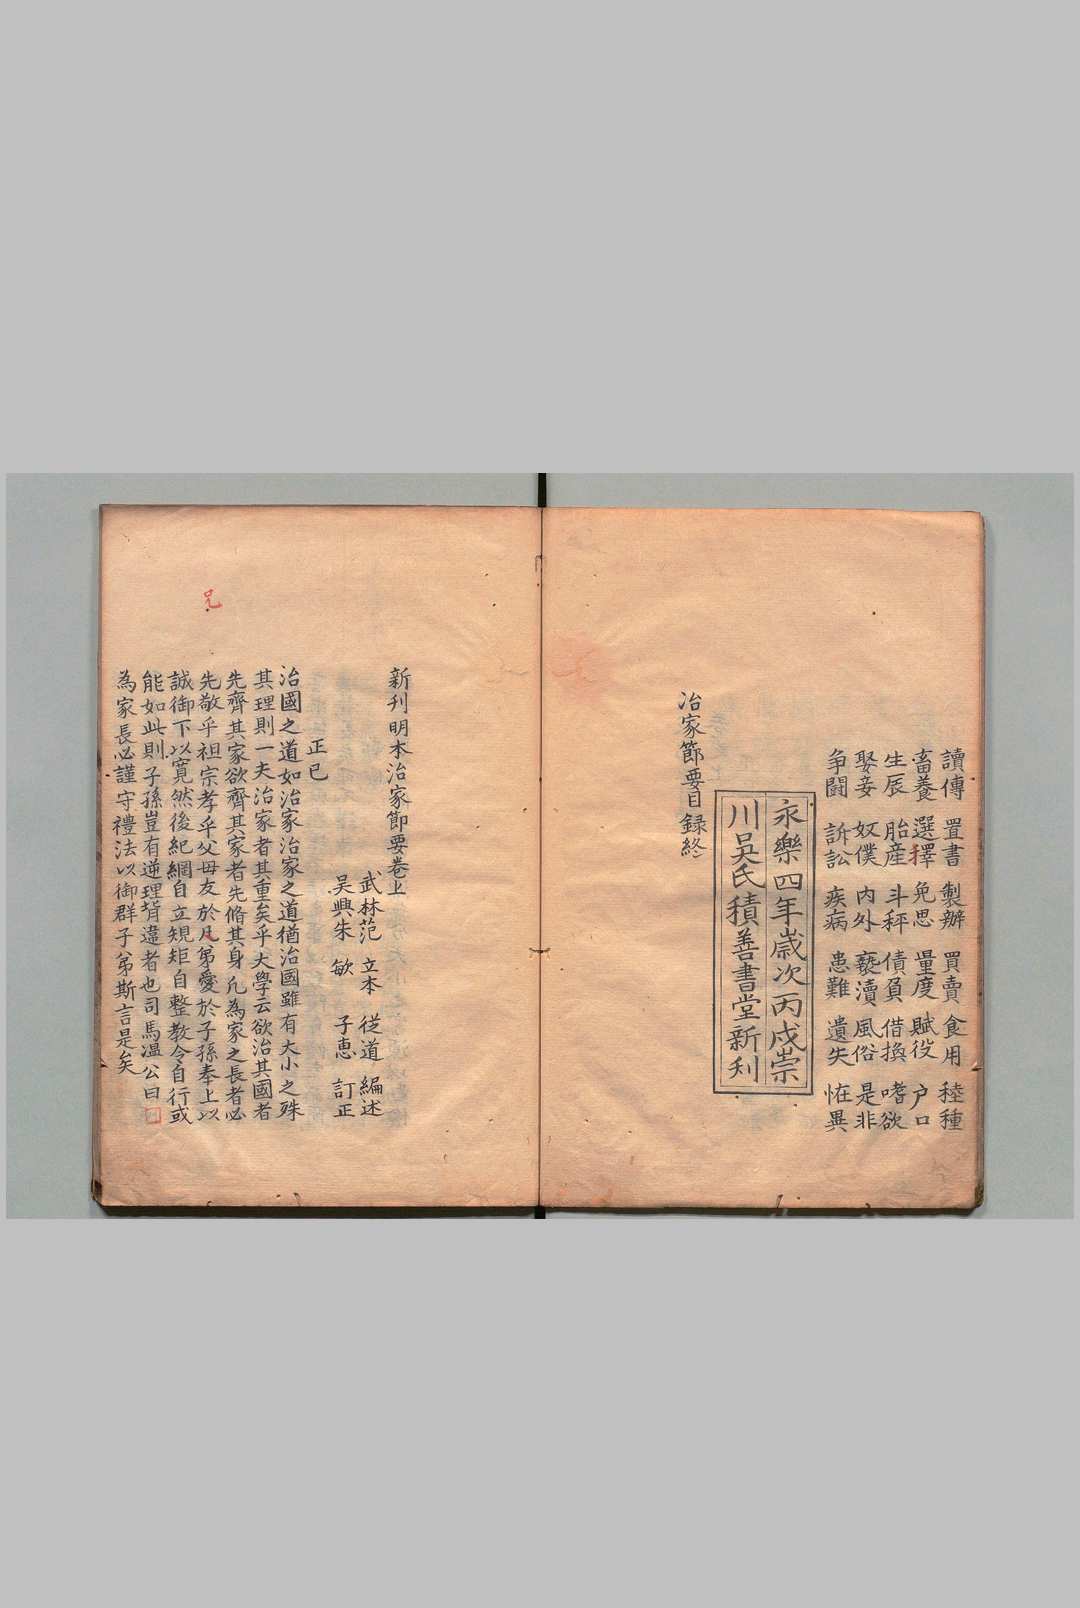 讀傳 置書 製辦 買賣 食用 稑種
畜養 選擇 免思 量度 賦役 户口
生辰 胎産 斗秤 債負 借換 嗜欲
娶妾 奴僕 内外 褻瀆 風俗 是非
争鬪 訴訟 疾病 患難 遺失 恠異
永樂四年歲次丙戌崇
川吳氏積善書堂新刊
治家節要目録終
新刊明本治家節要卷上
武林范 立本 從道 編述
吴興朱 敏 子恵 訂正
正己
治國之道如治家治家之道猶治國雖有大小之殊
其理則一夫治家者其重矣乎大學云欲治其國者
先齊其家欲齊其家者先脩其身凡為家之長者必
先敬乎祖宗孝乎父母友於凡弟愛於子孫奉上以
兄
誠御下以寛然後紀綱自立規矩自整教令自行或
能如此則子孫豈有逆理背違者也司馬温公曰
為家長必謹守禮法以御群子弟斯言是矣